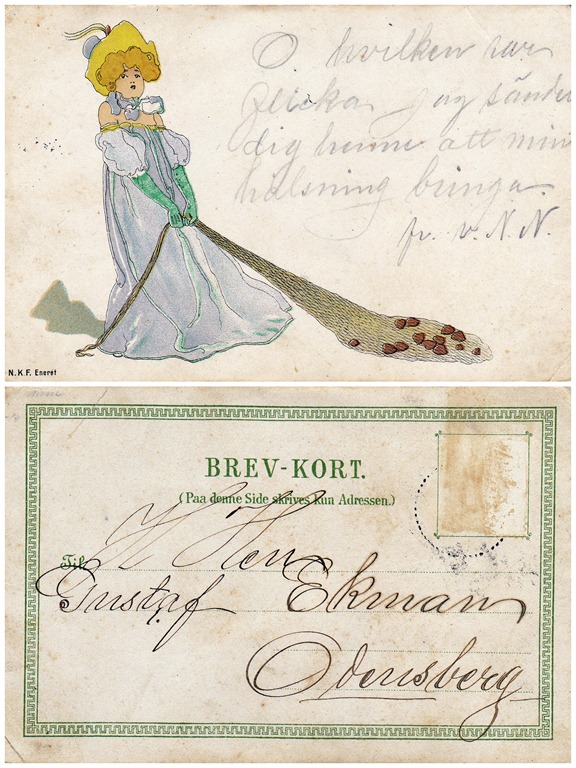 O hvilken rar
flicka jag sänder
dig henne att min
hälsning bringa.
fr. v. N. N.
N.K.F. Eneret
BREV-KORT.
(Paa denne Side skrives kun Adressen.)
Til
Herr
Gustaf Ekman
Odensberg